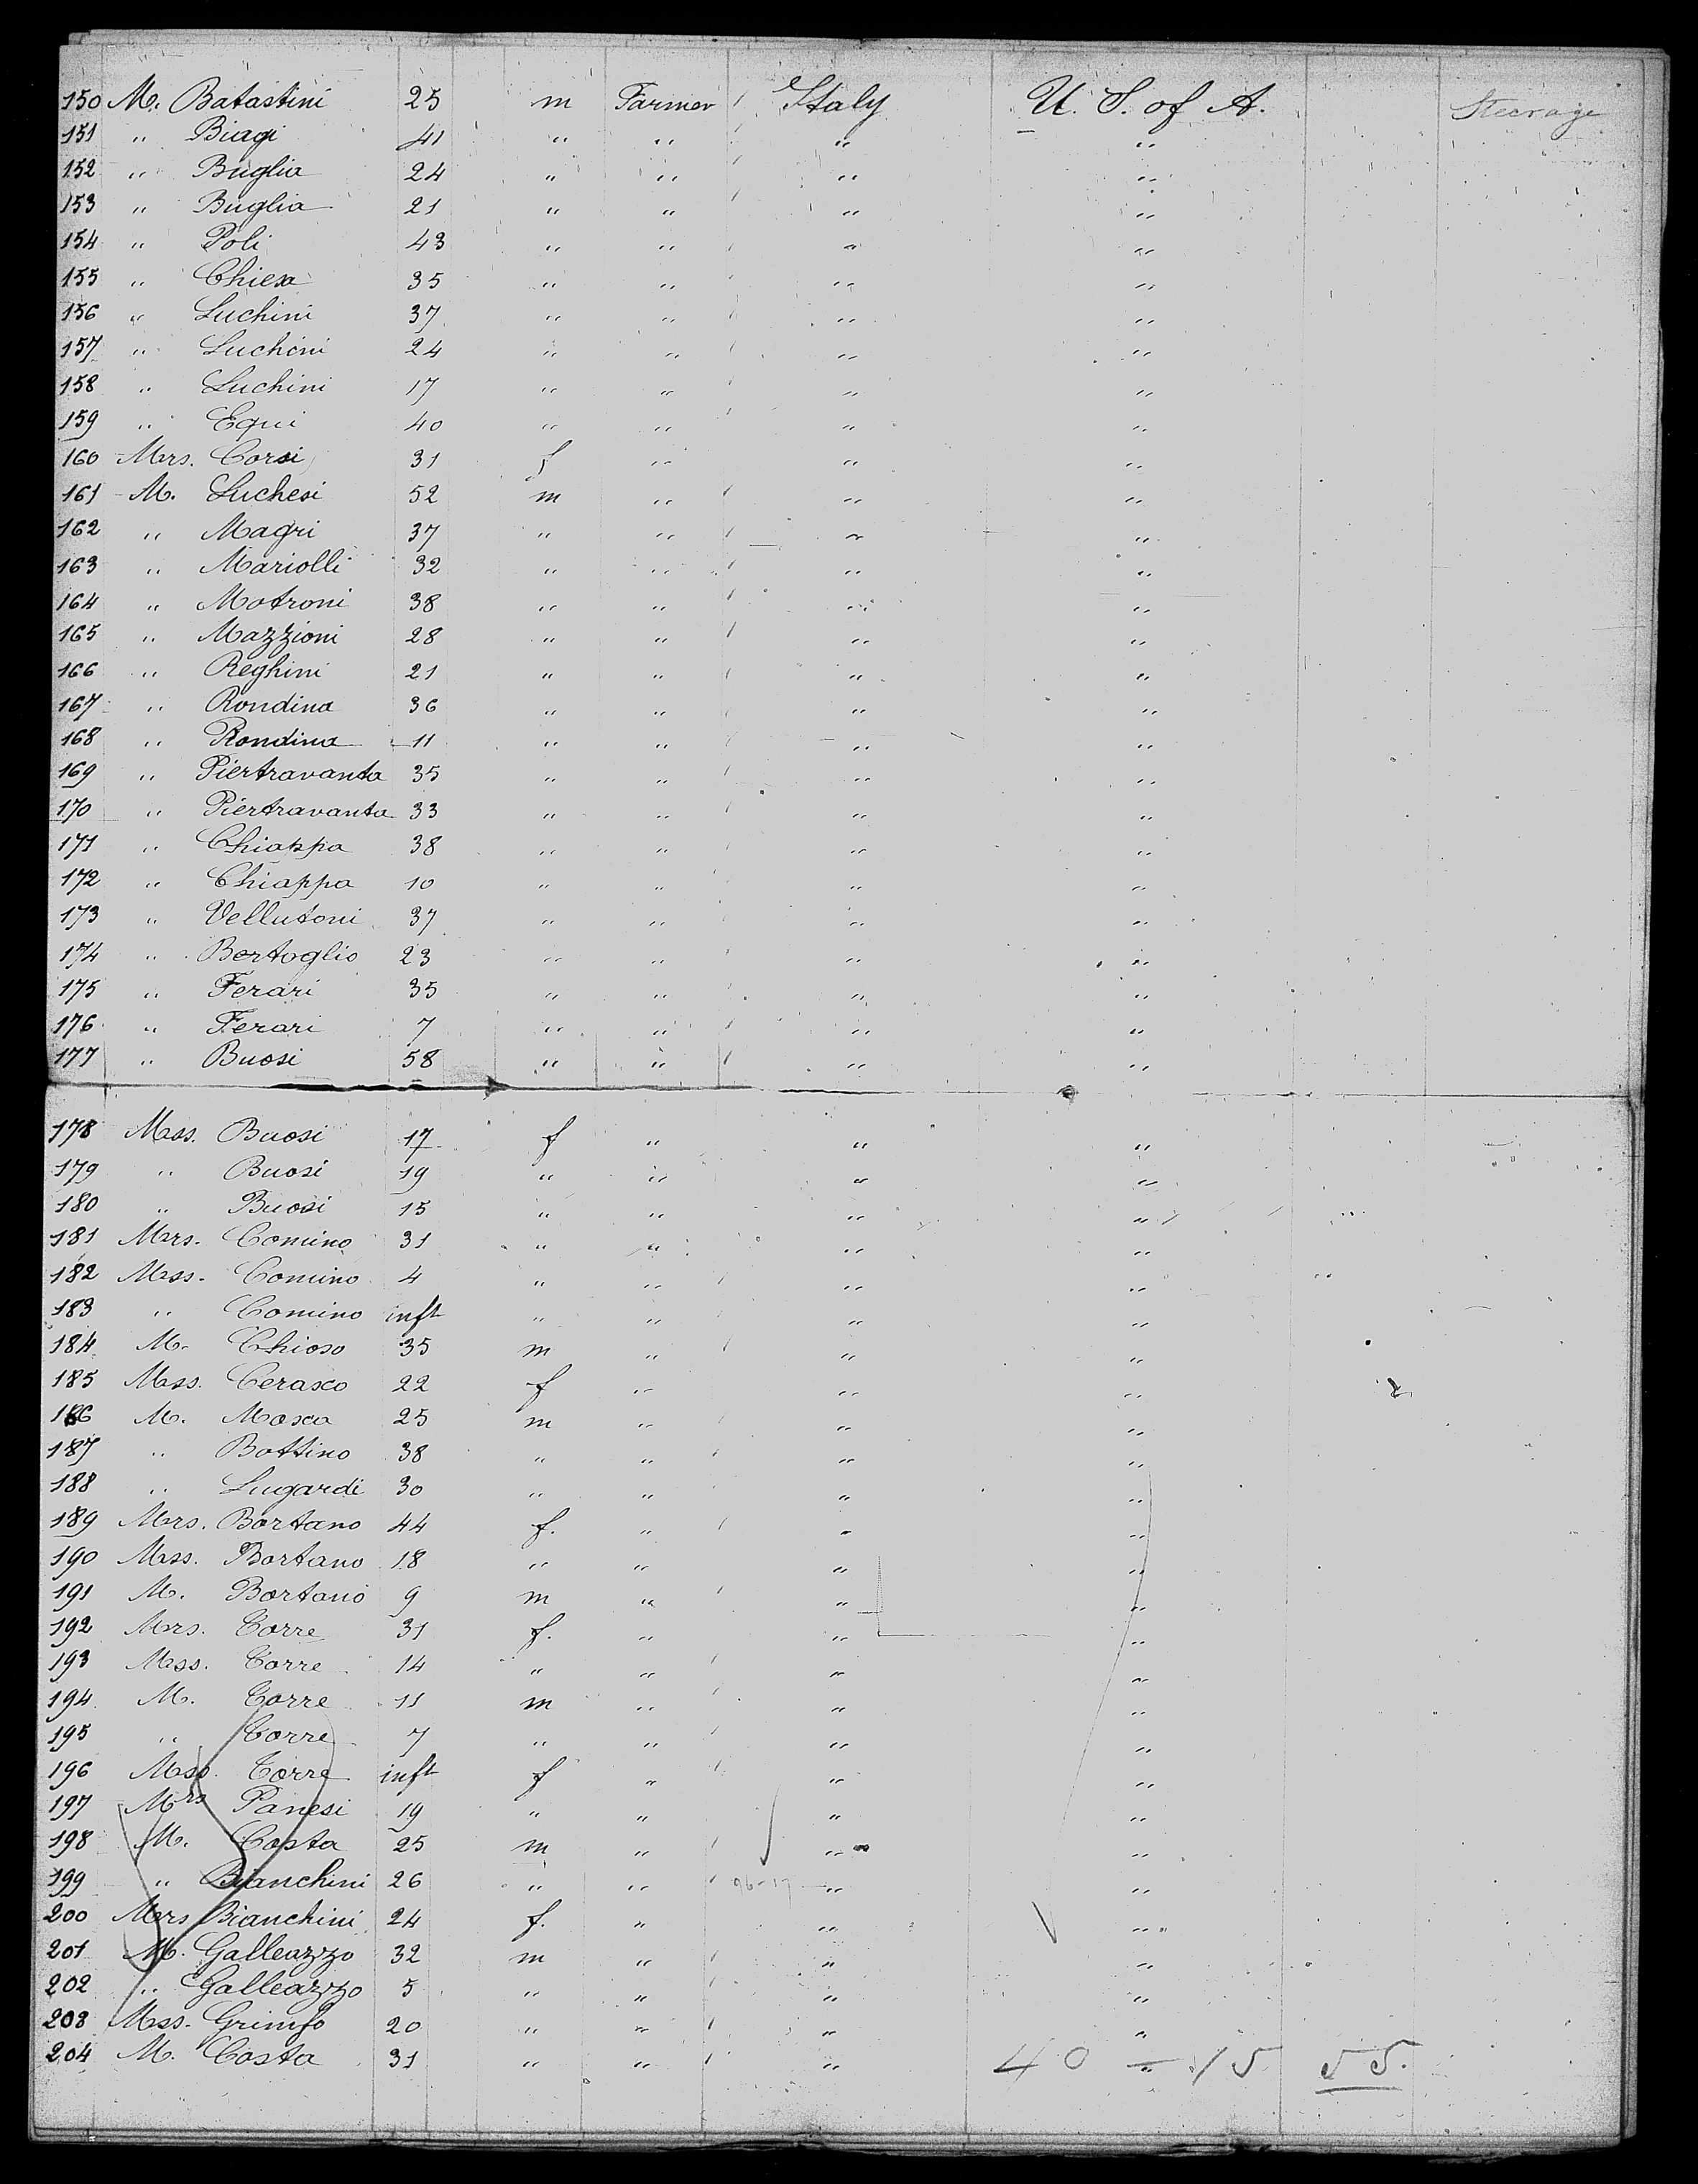 150 M. Batastini 25 m Farmer Italy U. S. of A. Steerage
151 " Biagi 41 " " " "
152 " Buglia 24 " " " "
153 " Buglia 21 " " " "
154 " Poli 43 " " " "
155 " Chiesa 35 " " " "
156 " Luchini 37 " " " "
157 " Luchini 24 " " " "
158 " Luchini 17 " " " "
159 " Equi 40 " " " "
160 Mrs. Corsi 31 f " " "
161 M. Luchesi 52 m " " "
162 " Magri 37 " " " "
163 " Mariolli 32 " " " "
164 " Motroni 38 " " " "
165 " Mazzioni 28 " " " "
166 " Reghini 21 " " " "
167 " Rondina 36 " " " "
168 " Rondina 11 " " " "
169 " Piertravanta 35 " " " "
170 " Piertravanta 33 " " " "
171 " Chiappa 38 " " " "
172 " Chiappa 10 " " " "
173 " Vellutoni 37 " " " "
174 " Bertoglio 23 " " " "
175 " Ferari 35 " " " "
176 " Ferari 7 " " " "
177 " Buosi 58 " " " "
178 Mss. Buosi 17 f " " "
179 " Buosi 19 " " " "
180 " Buosi 15 " " " "
181 Mrs. Comino 31 " " " "
182 Mss. Comino 4 " " " "
183 " Comino inft " " " "
184 M. Chioso 35 m " " "
185 Mss. Cerasco 22 f " " "
186 M. Mosca 25 m " " "
187 " Bottino 38 " " " "
188 " Lugardi 30 " " " "
189 Mrs. Bortano 44 f. " " "
190 Mss. Bortano 18 " " " "
191 M. Bortano 9 m " " "
192 Mrs. Torre 31 f. " " "
193 Mss. Torre 14 " " " "
194 M. Torre 11 m " " "
195 " Torre 7 " " " "
196 Mss. Torre inft f " " "
197 Mrs Panesi 19 " " " "
198 M. Costa 25 m " " "
199 " Bianchini 26 " " 96-17 " "
200 Mrs Bianchini 24 f. " " "
201 M. Galleazzo 32 m " " "
202 " Galleazzo 5 " " " "
203 Mss. 20 " " " "
204 M. Costa 31 " " " "
40 - 15 55.